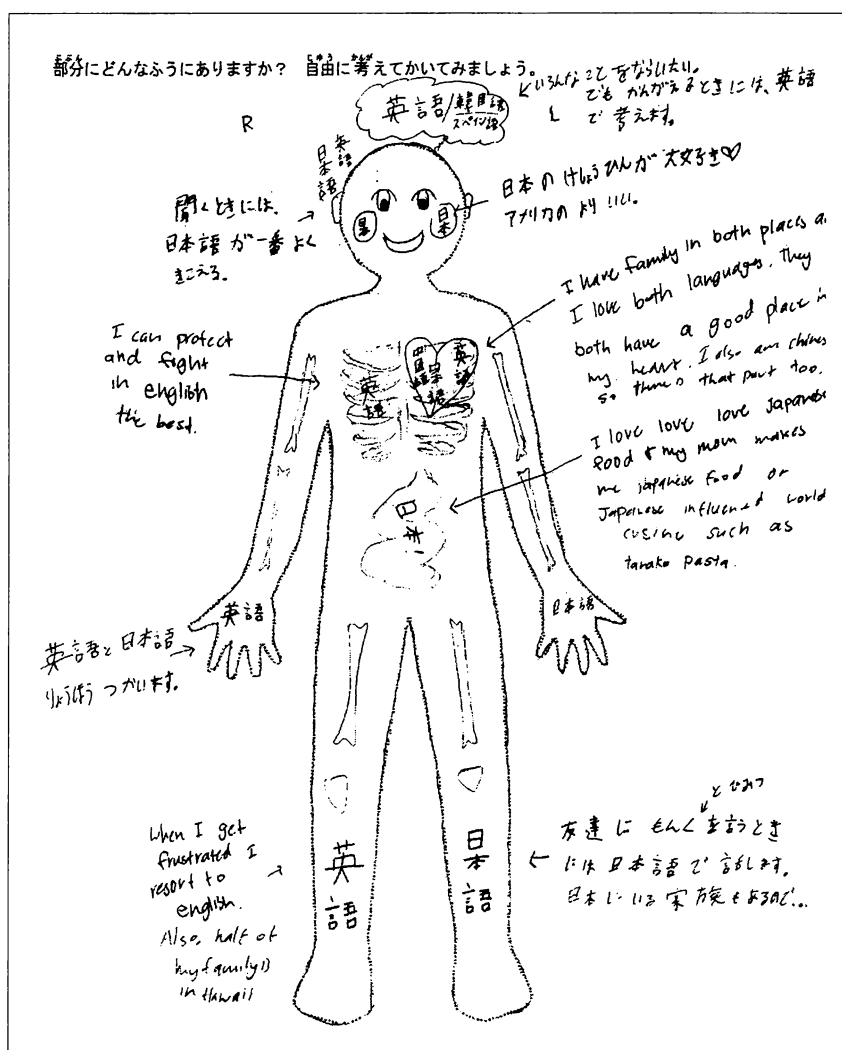 部分にどんなふうにありますか? 自由に考えてかいてみましょう。
R
英語/韓国語
スペイン語
いろんなことをならいたい。
でもかんがえるときには、英語
で考えます。
英語
日本語
聞くときには、
日本語が一番よく
きこえる。
日本
日本のけしょうひんが大好き♡
アメリカのよりいい。
I can protect
and fight
in english
the best.
英語
中国語
日本語
英語
I have family in both places a
I love both languages. They
both have a good place in
my heart. I also am chines
so there's that part too.
I love love love Japanese
food & my mom makes
me japanese food or
Japanese influenced world
cusine such as
tarako pasta.
日本
英語
日本語
英語と日本語
りょうほうつかいます。
When I get
frustrated I
resort to
english.
Also, half of
my family is
in Hawaii
英語
日本語
とひみつ
友達にもんくを言うとき
には日本語で話します。
日本にいる家族もあるので...